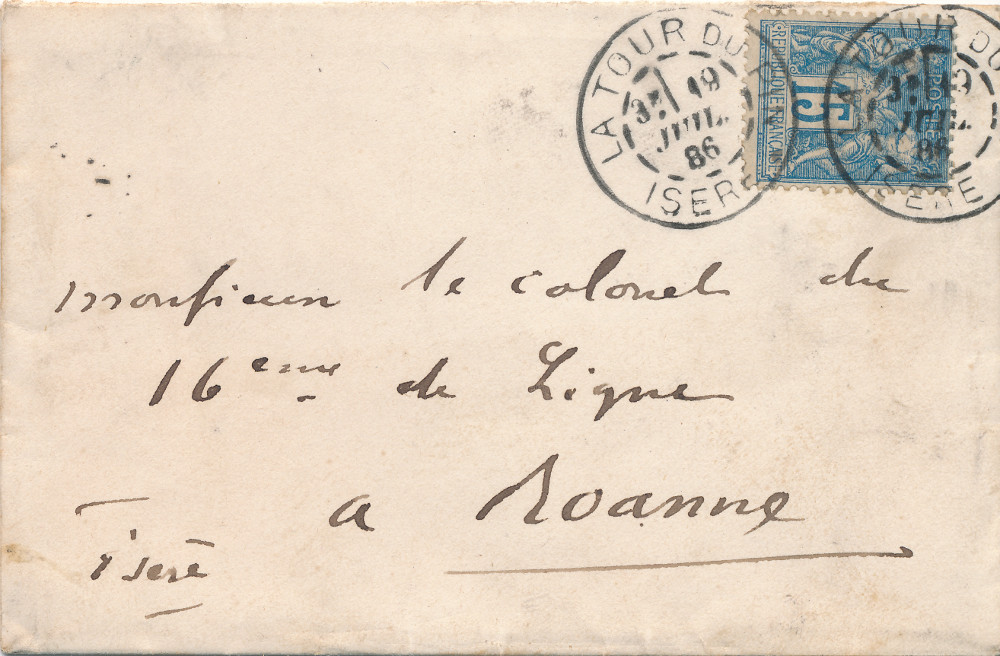 LA TOUR DU
3E 19
JUIL.
86
ISERE
REPUBLIQUE FRANCAISE
15
POSTE
TOUR DU
19
JUIL.
86
ISERE
Monsieur le colonel du
16 eme de Ligne
a Roanne
Iserè